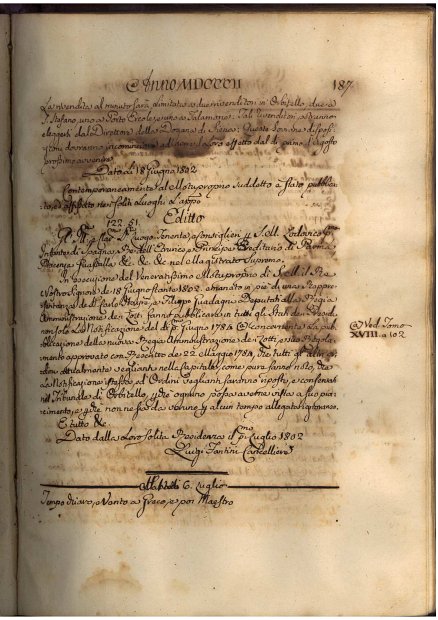 Anno MDCCCII
187
La rivendita al minuto sarà limitata a due rivenditori in Orbitello, due a
S. Stefano, uno a Porto Ercole, e uno a Talamone. Tali rivenditori saranno
eletti dal Direttore della Dogana di Siena. Queste disposi-
zioni dovranno incominciare ad avere loro effetto dal dì primo d'Agosto
prossimo avvenire
Dato li 18 Giugno 1802
Contemporaneamente al Motuproprio suddetto è stato pubblica-
to, ed affisso nei soliti luoghi
Editto
Luogo Tenente, e Consiglieri di S. M. Lodovico
Infante di Spagna Principe Ereditario di Parma
Piacenza Guastalla &c. &c. &c. nel Magistrato Supremo.
In esecuzione del Veneratissimo Motuproprio di S. M. il Re
Nostro Signore de' 18 Giugno stante 1802. emanato in piè di una Rappre-
sentanza Filippo Guadagni Deputati alla Regia
Amministrazione dei Lotti fanno pubblicare in tutti gli Stati dei Presidi
non solo la Notificazione del dì Giugno 1784 @ concernente la pub-
blicazione della nuova Regia Amministrazione dei Lotti, e suo Regola-
mento approvato con Rescritto de' 22 Maggio 1784, che tutti gli altri or-
dini attualmente veglianti nella capitale, come pure fanno noto, che
la Notificazione istessa ed Ordini veglianti saranno riposti, e conservati
nel Tribunale di Orbitello, che ognuno possa averne vista a suo pia-
cimento, e che non ne possa veruno in alcun tempo allegare ignoranza.
E tutto &c.
Dato dalla Loro Solita Residenza il p.mo Luglio 1802
Luigi Fantini Cancelliere
@ Ved. Tomo
XVIII. a 102
6. Luglio
Tempo chiaro, e Vento a Greco, e poi Maestro